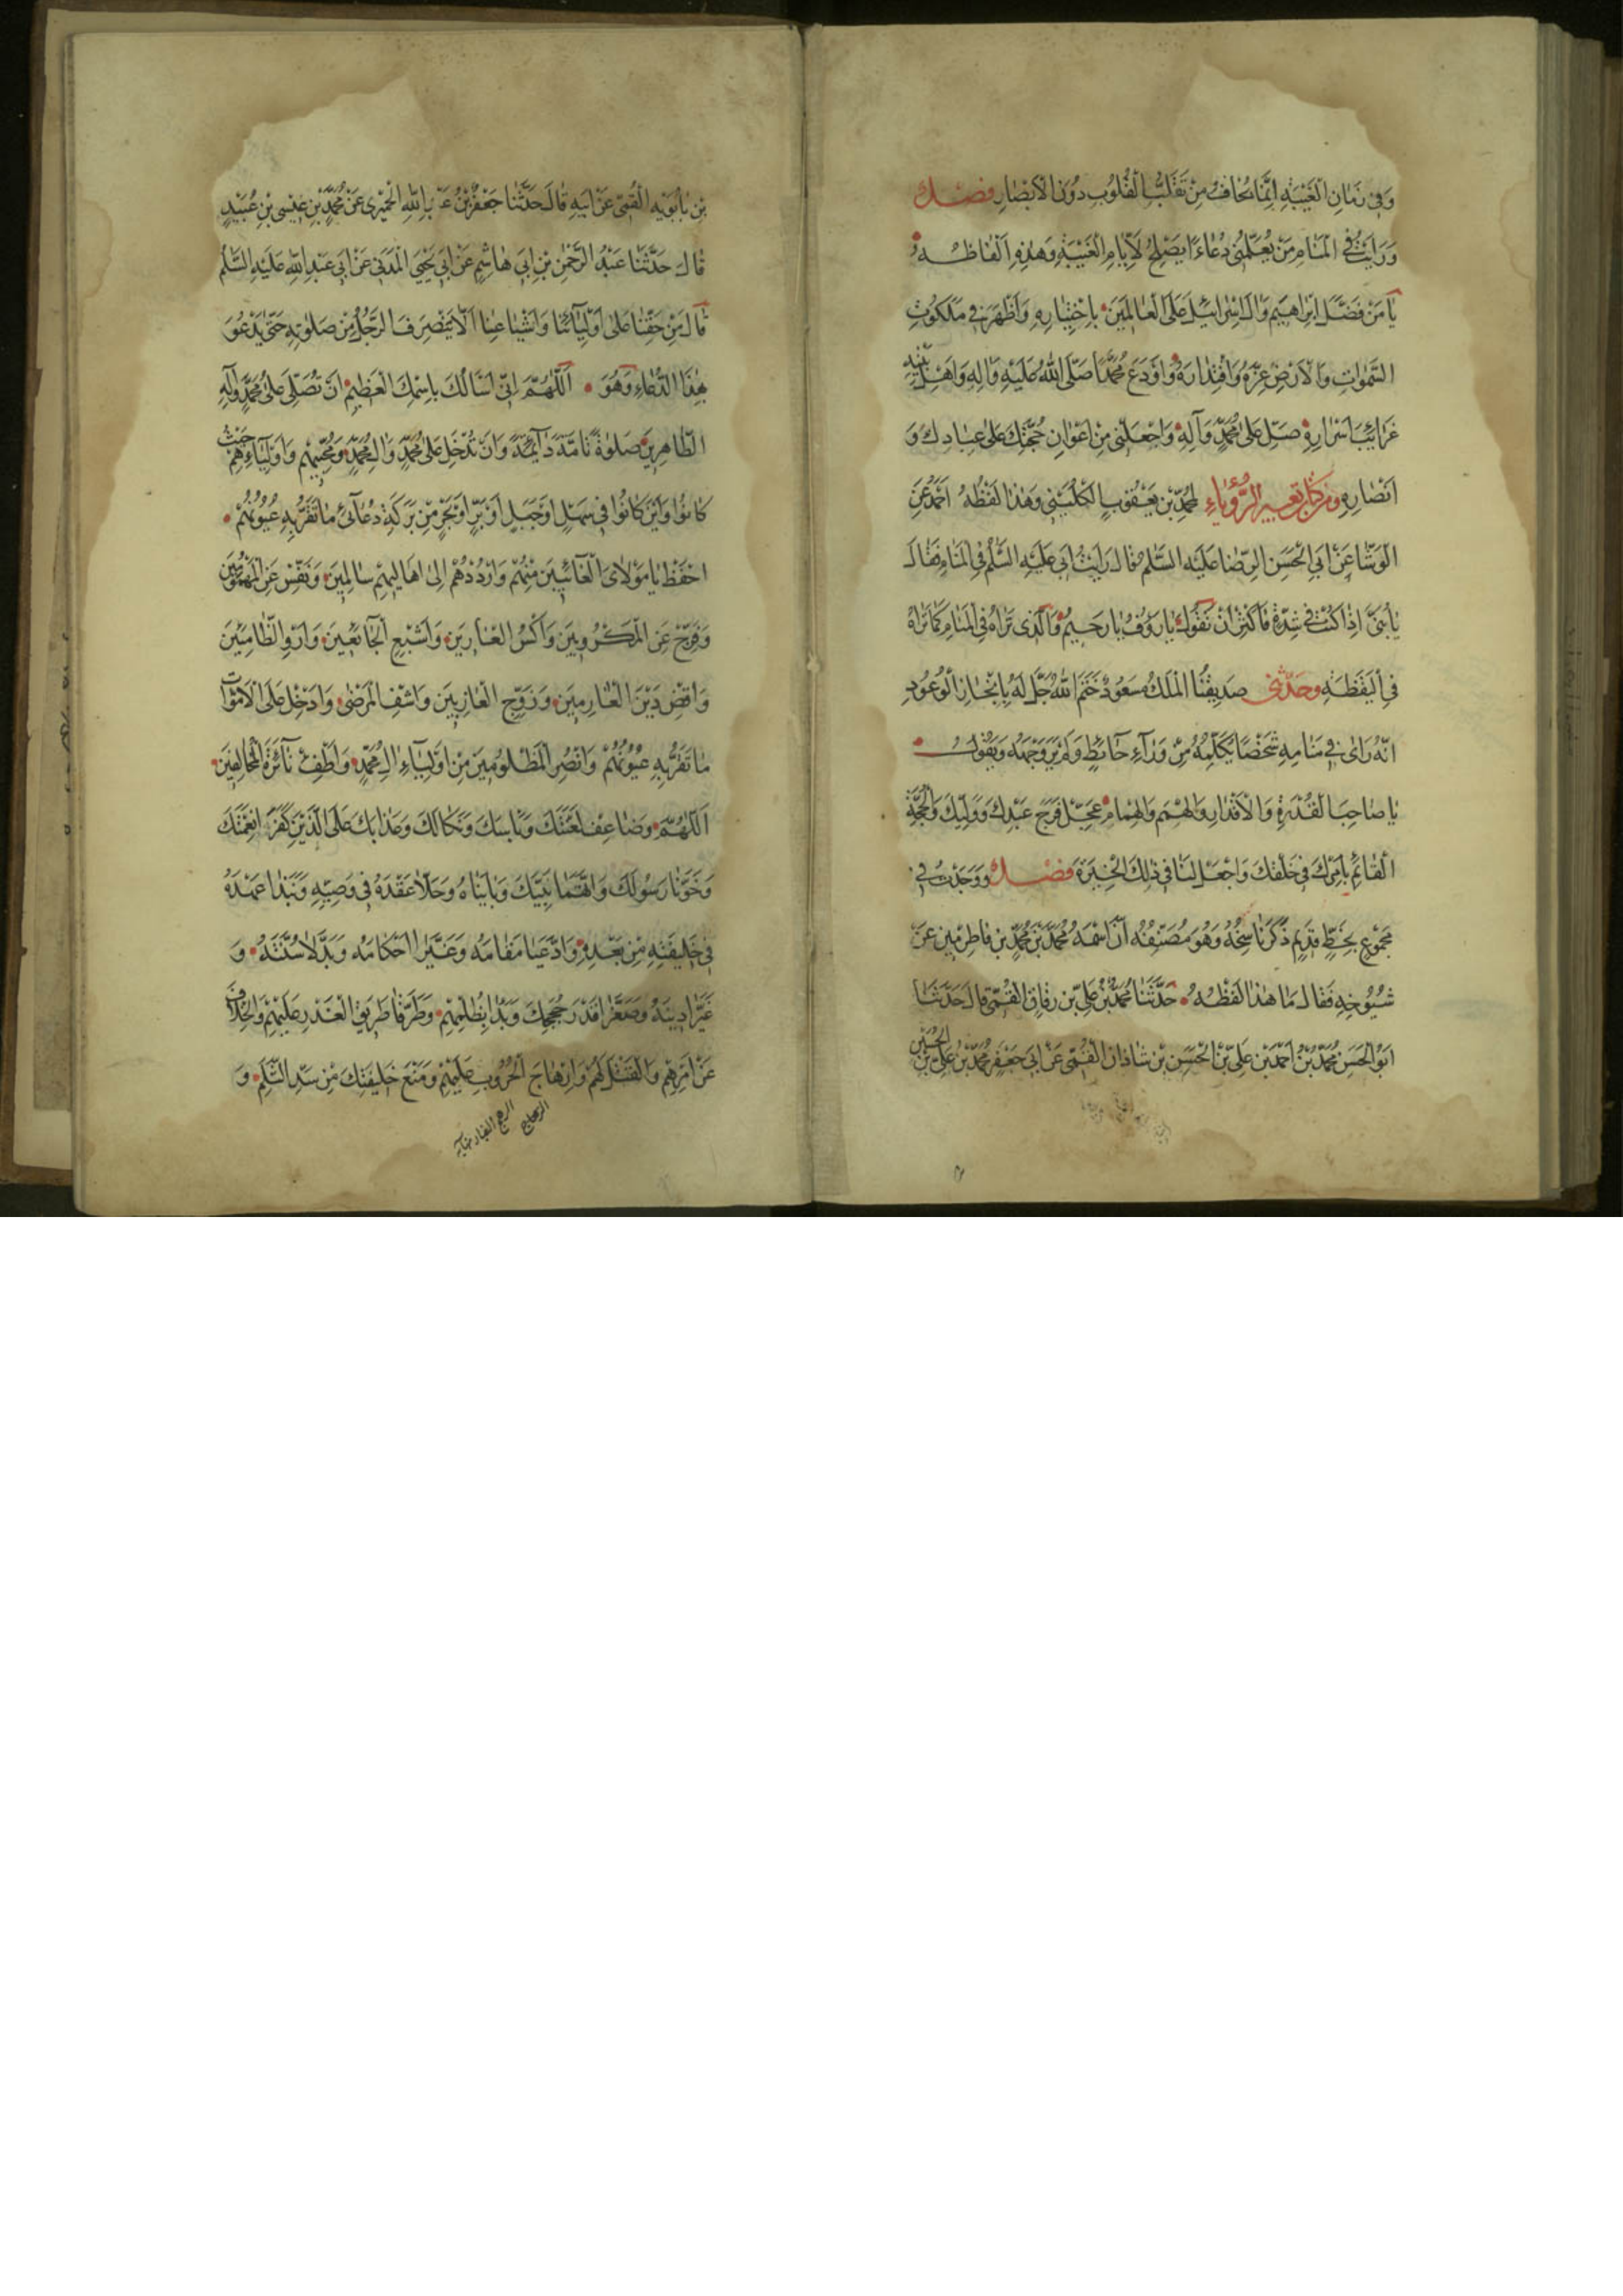 وَفِي زَمَانِ الْغَيْبَةِ اِنَّمَا يُخَافُ مِنْ تَقَلُّبِ الْقُلُوبِ دُونَ الْأَبْصَارِ فصل
وَرَأَيْتُ فِي الْمَنَامِ مَنْ يُعَلِّمُنِي دُعَاءً يَصْلُحُ لِأَيَّامِ الْغَيْبَةِ وَهٰذِهِ اَلْفَاظُهُ
يَا مَنْ فَضَّلَ اِبْرَاهِيمَ وَاٰلَ اِسْرَائِيلَ عَلَى الْعَالَمِينَ بِاخْتِيَارِهِ وَاَظْهَرَ فِي مَلَكُوتِ
السَّمٰوَاتِ وَالْاَرْضِ عِزَّهُ وَاقْتِدَارَهُ وَاَوْدَعَ مُحَمَّدًا صَلَّى اللهُ عَلَيْهِ وَاٰلِهِ وَاَهْلَ بَيْتِهِ
غَرَائِبَ اَسْرَارِهِ صَلِّ عَلٰى مُحَمَّدٍ وَاٰلِهِ وَاجْعَلْنِي مِنْ اَعْوَانِ حُجَّتِكَ عَلٰى عِبَادِكَ وَ
اَنْصَارِهِ ومن كتاب تعبير الرُّؤْيَاءِ لِمُحَمَّدِ بْنِ يَعْقُوبَ الْكُلَيْنِي وَهٰذَا لَفْظُهُ اَحْمَدُ عَنِ
الْوَشَّا عَنْ اَبِي الْحَسَنِ الرِّضَا عَلَيْهِ السَّلَمُ قَالَ رَاَيْتُ اَبِي عَلَيْهِ السَّلَمُ فِي الْمَنَامِ فَقَالَ
يَا بُنَيَّ اِذَا كُنْتَ فِي شِدَّةٍ فَاَكْثِرْ اَنْ تَقُولَ يَا رَؤُفُ يَا رَحِيمُ وَالَّذِي تَرَاهُ فِي الْمَنَامِ كَمَا تَرَاهُ
فِي الْيَقَظَةِ وحَدَّثَنِي صَدِيقُنَا الْمَلَكُ مَسْعُودٌ خَتَمَ اللهُ جَلَّ لَهُ بِاِنْجَازِ الْوُعُودِ
اَنَّهُ رَاٰى فِي مَنَامِهِ شَخْصًا يُكَلِّمُهُ مِنْ وَرَاءِ حَائِطٍ وَلَمْ يَرَ وَجْهَهُ وَيَقُولُ
يَا صَاحِبَ الْقُدْرَةِ وَالْاَقْدَارِ وَالْهِمَمِ وَالْهِمَامِ عَجِّلْ فَرَجَ عَبْدِكَ وَوَلِيِّكَ وَالْحُجَّةِ
الْقَائِمِ بِاَمْرِكَ فِي خَلْقِكَ وَاجْعَلْ لَنَا فِي ذٰلِكَ الْخِيَرَةَ فصل وَوَجَدْتُ فِي
مَجْمُوعٍ بِخَطٍّ قَدِيمٍ ذَكَرَ نَاسِخُهُ وَهُوَ مُصَنِّفُهُ اَنَّ اسْمَهُ مُحَمَّدُ بْنُ مُحَمَّدِ بْنِ فَاطِرٍ مِنْ عَنْ
شُيُوخِهِ فَقَالَ مَا هٰذَا لَفْظُهُ حَدَّثَنَا مُحَمَّدُ بْنُ عَلِيِّ بْنِ رِفَاقِ الْقُمِّي قَالَ حَدَّثَنَا
اَبُو الْحَسَنِ مُحَمَّدُ بْنُ اَحْمَدَ بْنِ عَلِيِّ بْنِ الْحَسَنِ بْنِ شَاذَانَ الْقُمِّي عَنْ اَبِي جَعْفَرٍ مُحَمَّدِ بْنِ عَلِيِّ بْنِ الْحُسَيْنِ
بْنِ بَابَوَيْهِ الْقُمِّي عَنْ اَبِيهِ قَالَ حَدَّثَنَا جَعْفَرُ بْنُ عَبْدِ اللهِ الْحِمْيَرِي عَنْ مُحَمَّدِ بْنِ عِيسٰى بْنِ عُبَيْدٍ
قَالَ حَدَّثَنَا عَبْدُ الرَّحْمٰنِ بْنِ اَبِي هَاشِمٍ عَنْ اَبِي يَحْيَى الْمَدَنِي عَنْ اَبِي عَبْدِ اللهِ عَلَيْهِ السَّلَمُ
قَالَ مِنْ حَقِّنَا عَلٰى اَوْلِيَائِنَا وَاَشْيَاعِنَا اَلَّا يَنْصَرِفَ الرَّجُلُ مِنْ صَلٰوتِهِ حَتّٰى يَدْعُوَ
بِهٰذَا الدُّعَاءِ وَهُوَ اَللّٰهُمَّ اِنِّي اَسْاَلُكَ بِاسْمِكَ الْعَظِيمِ اَنْ تُصَلِّيَ عَلٰى مُحَمَّدٍ وَاٰلِهِ
الطَّاهِرِينَ صَلٰوةً تَامَّةً دَائِمَةً وَاَنْ تُدْخِلَ عَلٰى مُحَمَّدٍ وَاٰلِ مُحَمَّدٍ وَمُحِبِّيهِمْ وَاَوْلِيَاءِهِمْ حَيْثُ
كَانُوا وَاَيْنَ كَانُوا فِي سَهْلٍ اَوْ جَبَلٍ اَوْ بَرٍّ اَوْ بَحْرٍ مِنْ بَرَكَةِ دُعَائِي مَا تَقَرُّ بِهِ عُيُونُهُمْ
احْفَظْ يَا مَوْلَايَ الْغَائِبِينَ مِنْهُمْ وَارْدُدْهُمْ اِلٰى اَهَالِيهِمْ سَالِمِينَ وَنَفِّسْ عَنِ الْمَهْمُومِينَ
وَفَرِّجْ عَنِ الْمَكْرُوبِينَ وَاكْسُ الْعَارِينَ وَاَشْبِعِ الْجَائِعِينَ وَاَرْوِ الظَّامِئِينَ
وَاقْضِ دَيْنَ الْغَارِمِينَ وَزَوِّجِ الْعَازِبِينَ وَاشْفِ الْمَرْضٰى وَاَدْخِلْ عَلَى الْاَمْوَاتِ
مَا تَقَرُّ بِهِ عُيُونُهُمْ وَانْصُرِ الْمَظْلُومِينَ مِنْ اَوْلِيَاءِ اٰلِ مُحَمَّدٍ وَاَطْفِئْ نَائِرَةَ الْمُخَالِفِينَ
اَللّٰهُمَّ وَضَاعِفْ لَعْنَتَكَ وَبَاْسَكَ وَنَكَالَكَ وَعَذَابَكَ عَلَى الَّذَيْنِ كَفَرَا نِعْمَتَكَ
وَخَوَّنَا رَسُولَكَ وَاتَّهَمَا نَبِيَّكَ وَبَايَنَاهُ وَحَلَّا عَقْدَهُ فِي وَصِيِّهِ وَنَبَذَا عَهْدَهُ
فِي خَلِيفَتِهِ مِنْ بَعْدِهِ وَادَّعَيَا مَقَامَهُ وَغَيَّرَا اَحْكَامَهُ وَبَدَّلَا سُنَّتَهُ وَ
غَيَّرَا دِينَهُ وَصَغَّرَا قَدْرَ حُجَجِكَ وَبَدَاٰ بِظُلْمِهِمْ وَطَرَّقَا طَرِيقَ الْغَدْرِ عَلَيْهِمْ وَالْخِلَافِ
عَنْ اَمْرِهِمْ وَالْقَتْلِ لَهُمْ وَاِرْهَاجِ الْحُرُوبِ عَلَيْهِمْ وَمَنْعِ خَلِيفَتِكَ مِنْ سَدِّ الثُّلَمِ وَ